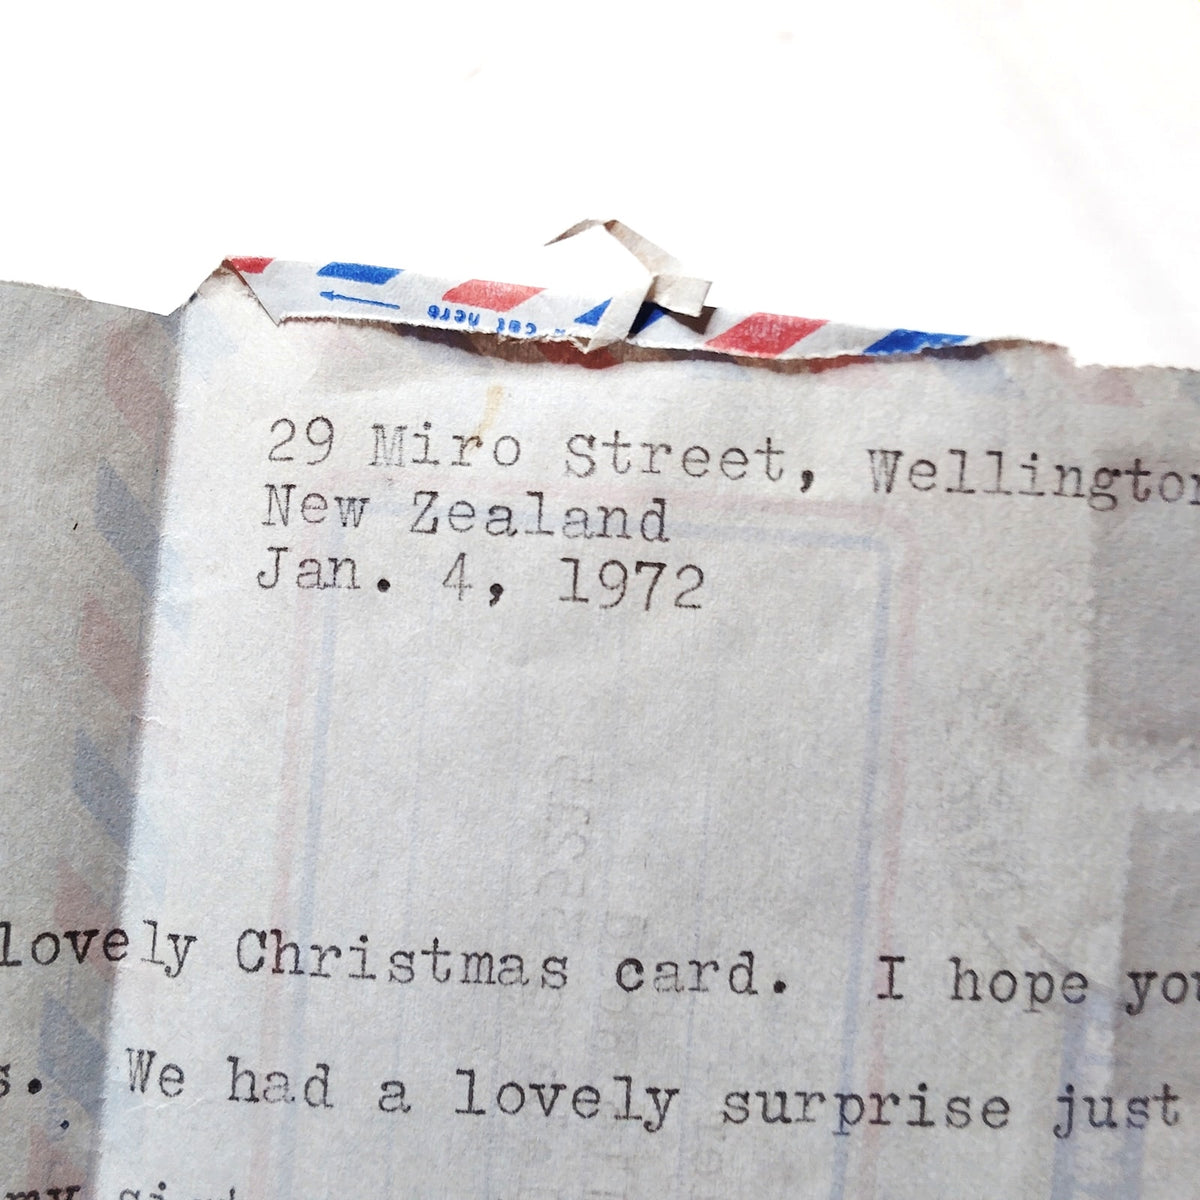 cut here
29 Miro Street, Wellington
New Zealand
Jan. 4, 1972
lovely Christmas card. I hope you
s. We had a lovely surprise just
my